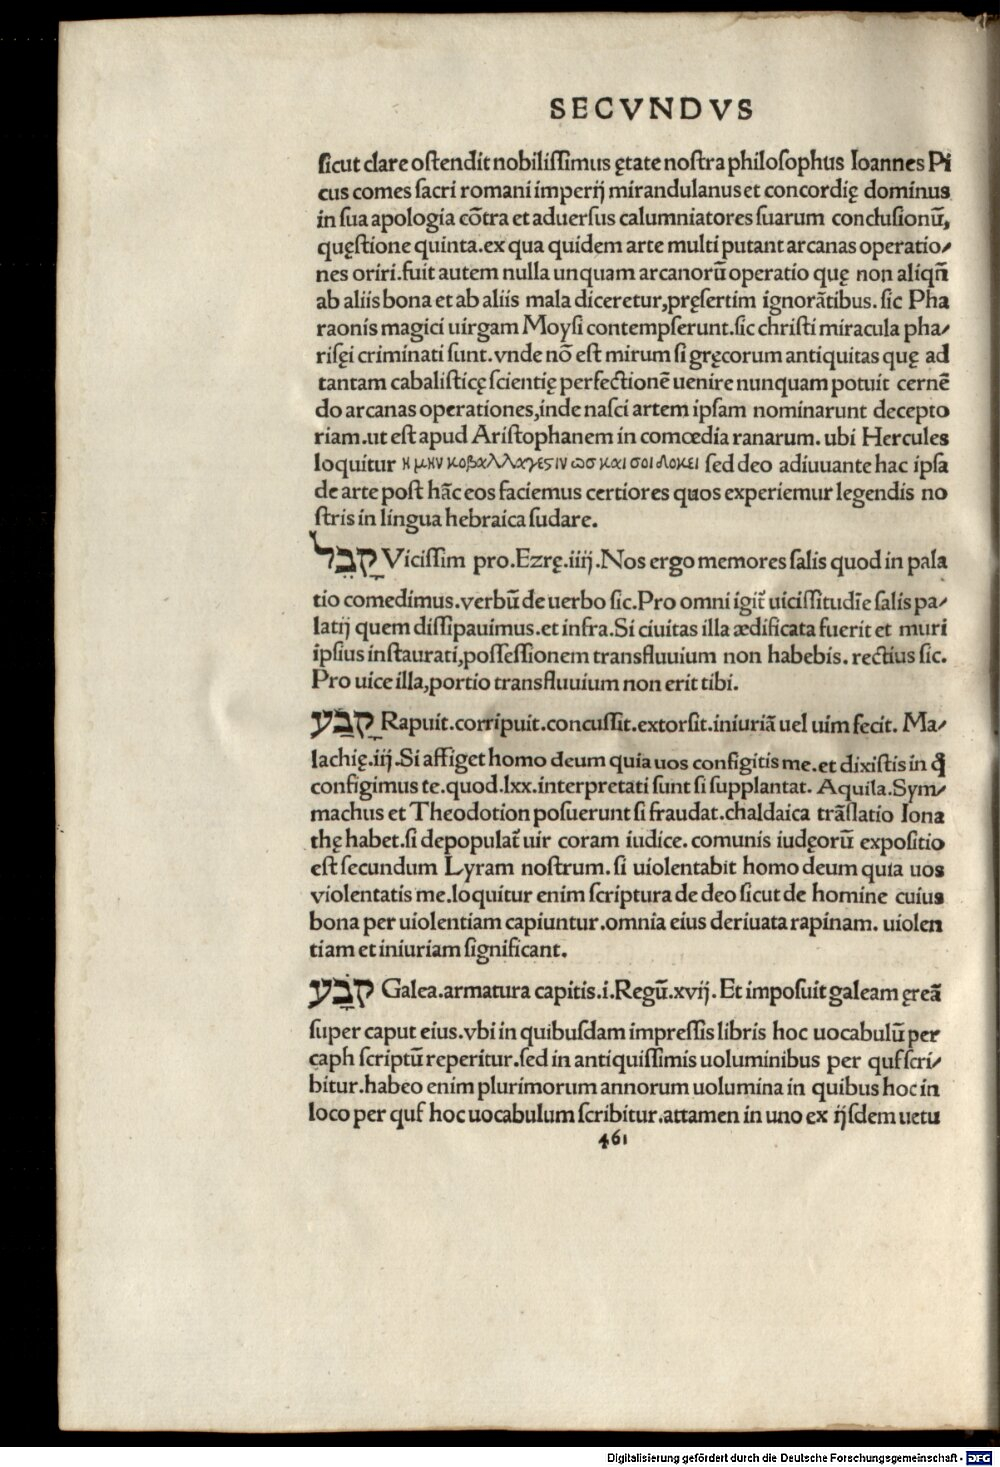 SECVNDVS
sicut clare ostendit nobilissimus ętate nostra philosophus Ioannes Pi
cus comes sacri romani imperij mirandulanus et concordię dominus
in sua apologia cõtra et aduersus calumniatores suarum conclusionũ,
quęstione quinta.ex qua quidem arte multi putant arcanas operatio/
nes oriri.fuit autem nulla unquam arcanorũ operatio quę non aliqñ
ab aliis bona et ab aliis mala diceretur,pręsertim ignorãtibus. sic Pha
raonis magici uirgam Moysi contempserunt.sic christi miracula pha/
risęi criminati sunt.vnde nõ est mirum si gręcorum antiquitas quę ad
tantam cabalisticę scientię perfectionẽ uenire nunquam potuit cernẽ
do arcanas operationes,inde nasci artem ipsam nominarunt decepto
riam.ut est apud Aristophanem in comœdia ranarum. ubi Hercules
loquitur η μην κοβαλλαγεςιν ωσ και σοι δοκει sed deo adiuuante hac ipsa
de arte post hãc eos faciemus certiores quos experiemur legendis no
stris in lingua hebraica sudare.
קָבֵל Vicissim pro.Ezrę.iiij.Nos ergo memores salis quod in pala
tio comedimus.verbũ de uerbo sic.Pro omni igit̃ uicissitudĩe salis pa/
latij quem dissipauimus.et infra.Si ciuitas illa ædificata fuerit et muri
ipsius instaurati,possessionem transfluuium non habebis. rectius sic.
Pro uice illa,portio transfluuium non erit tibi.
קָבַע Rapuit.corripuit.concussit.extorsit.iniuriã uel uim fecit. Ma/
lachię.iij.Si affiget homo deum quia uos configitis me.et dixistis in q̃
configimus te.quod.lxx.interpretati sunt si supplantat. Aquila.Sym/
machus et Theodotion posuerunt si fraudat.chaldaica trãslatio Iona
thę habet.si depopulat̃ uir coram iudice. comunis iudęorũ expositio
est secundum Lyram nostrum. si uiolentabit homo deum quia uos
violentatis me.loquitur enim scriptura de deo sicut de homine cuius
bona per uiolentiam capiuntur.omnia eius deriuata rapinam. uiolen
tiam et iniuriam significant.
קֹבַע Galea.armatura capitis.i.Regũ.xvij. Et imposuit galeam ęreã
super caput eius.vbi in quibusdam impressis libris hoc uocabulũ per
caph scriptũ reperitur.sed in antiquissimis uoluminibus per quf scri/
bitur.habeo enim plurimorum annorum uolumina in quibus hoc in
loco per quf hoc uocabulum scribitur.attamen in uno ex ijsdem uetu
461
Digitalisierung gefördert durch die Deutsche Forschungsgemeinschaft - DFG